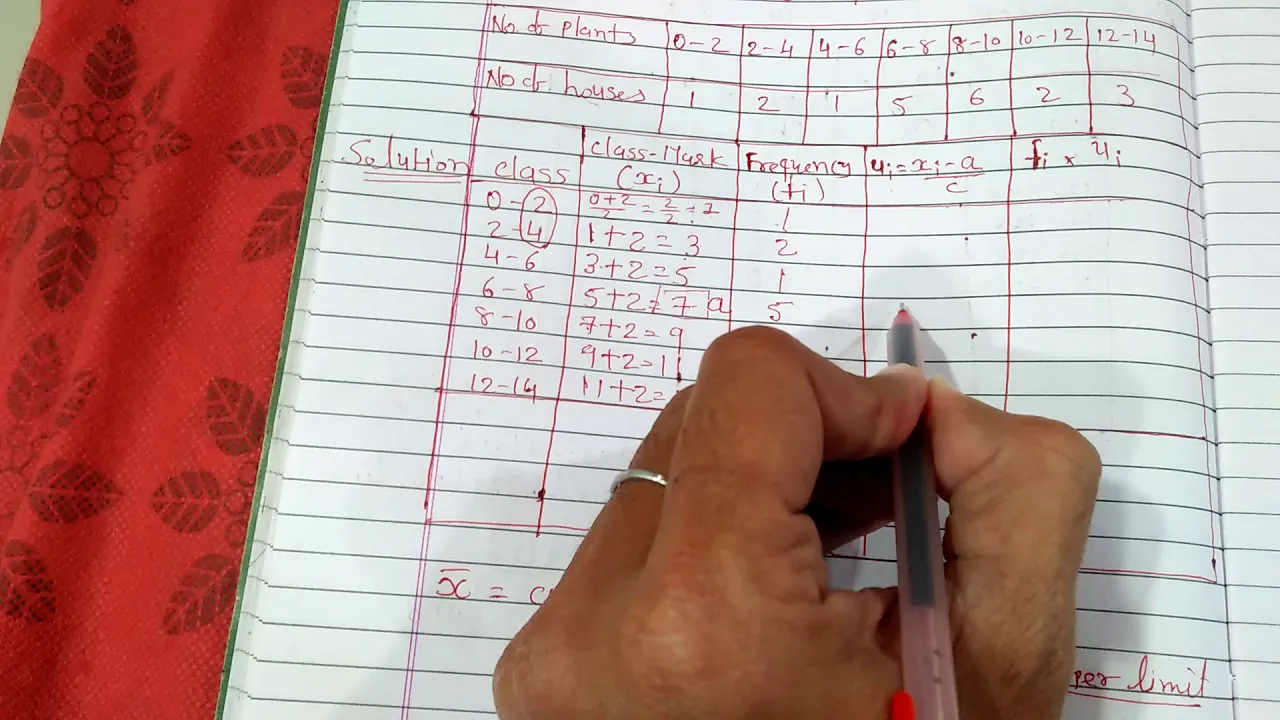 No. of plants 0-2 2-4 4-6 6-8 8-10 10-12 12-14
No of houses 1 2 1 5 6 2 3
Solution class class-Mark (xi) Frequency (fi) ui = xi - a / c fi × ui
0-2 0+2/2 = 2/2 = 1 1
2-4 1+2=3 2
4-6 3+2=5 1
6-8 5+2=7 a 5
8-10 7+2=9
10-12 9+2=11
12-14 11+2=
x̄ =
limit